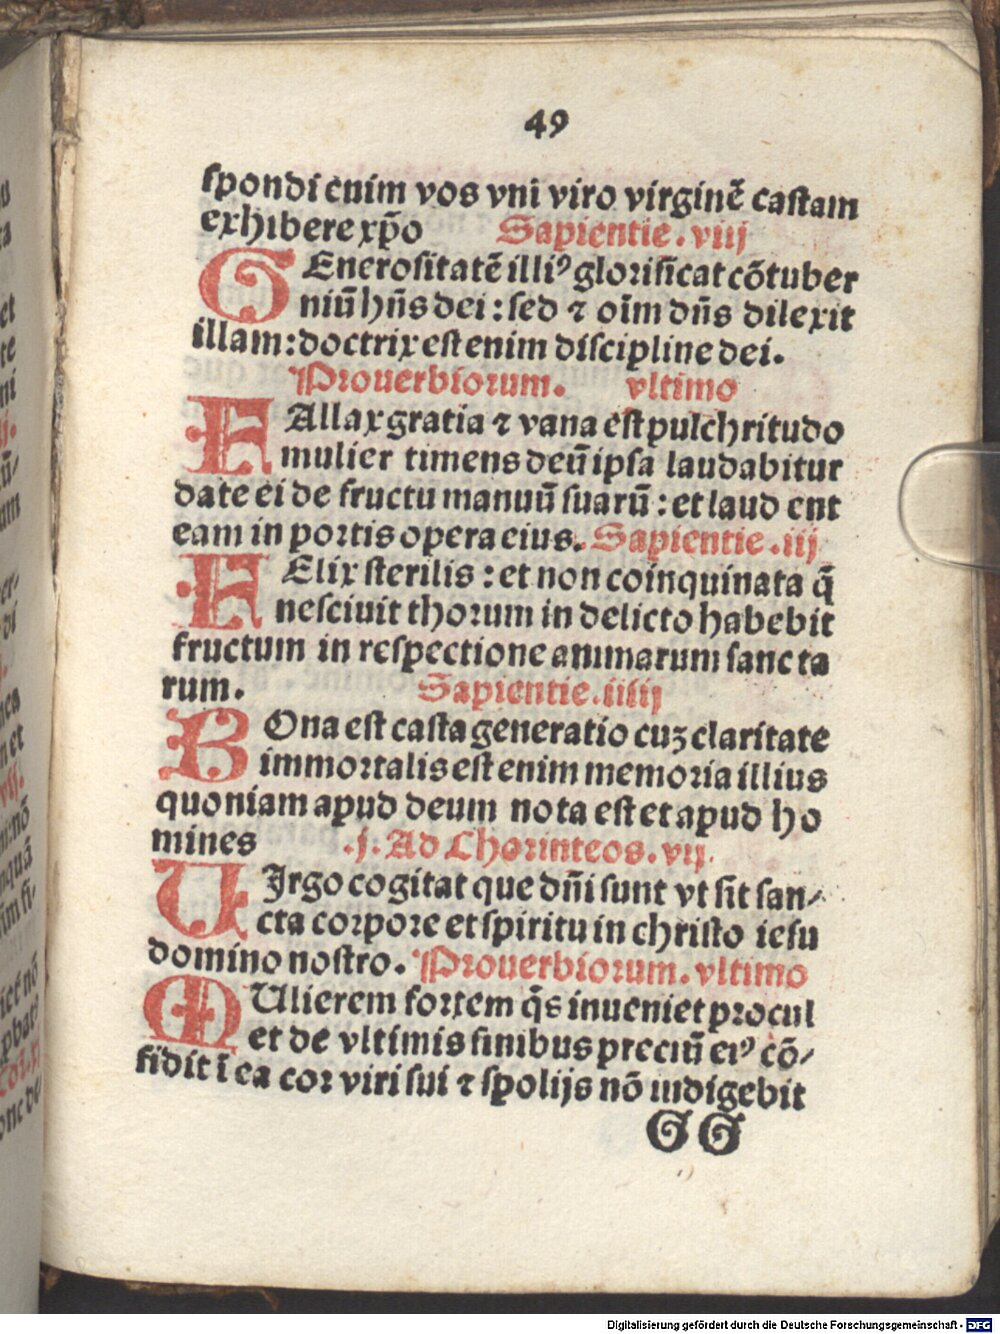 49
spondi enim vos vni viro virginē castam
exhibere xp̄o Sapientie. viij
GEnerositatē illiꝰ glorificat cōtuber
niū hn̄s dei : sed ⁊ oīm dn̄s dilexit
illam: doctrix est enim discipline dei.
Prouerbiorum. vltimo
FAllax gratia ⁊ vana est pulchritudo
mulier timens deū ipsa laudabitur
date ei de fructu manuū suarū : et laud ent
eam in portis opera eius. Sapientie .iij
FElix sterilis : et non coinquinata q̄
nesciuit thorum in delicto habebit
fructum in respectione animarum sancta
rum. Sapientie. iiij
BOna est casta generatio cuꝫ claritate
immortalis est enim memoria illius
quoniam apud deum nota est et apud ho
mines .j. Ad Chorinteos. vij.
UJrgo cogitat que dn̄i sunt vt sit san⸗
cta corpore et spiritu in christo iesu
domino nostro. Prouerbiorum. vltimo
MUlierem fortem q̄s inueniet procul
et de vltimis finibus preciū eiꝰ cō⸗
fidit ī ea cor viri sui ⁊ spolijs nō indigebit
GG
Digitalisierung gefördert durch die Deutsche Forschungsgemeinschaft - DFG